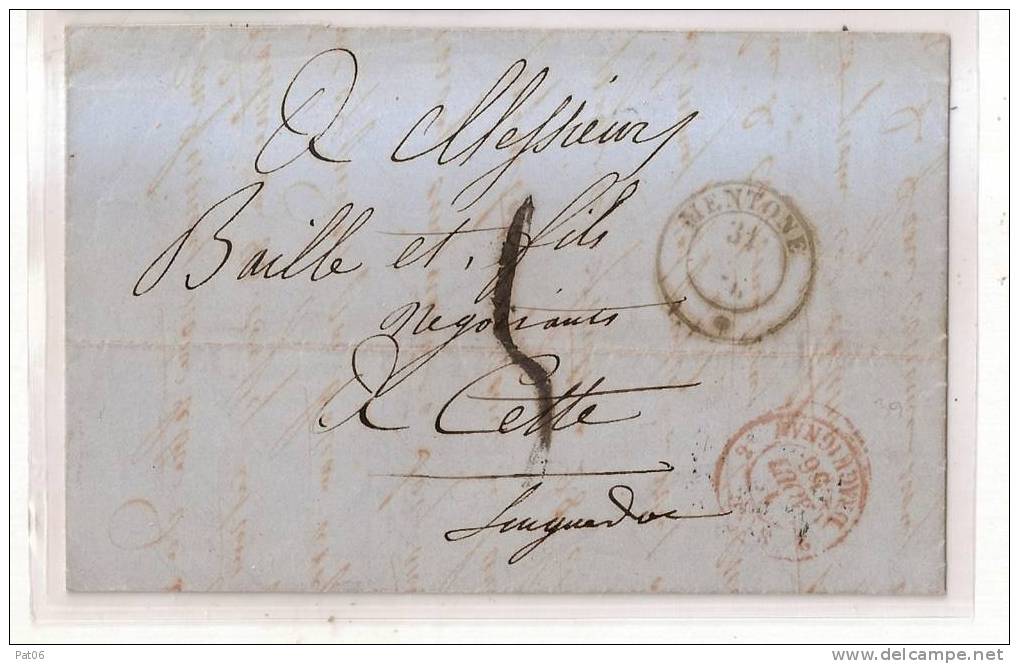 A Messieurs
Baille et fils
négotiants
A Cette
Languedoc
5
MENTONE
31
DRAGUIGNAN
AOUT
56
2
Pat06
www.delcampe.net